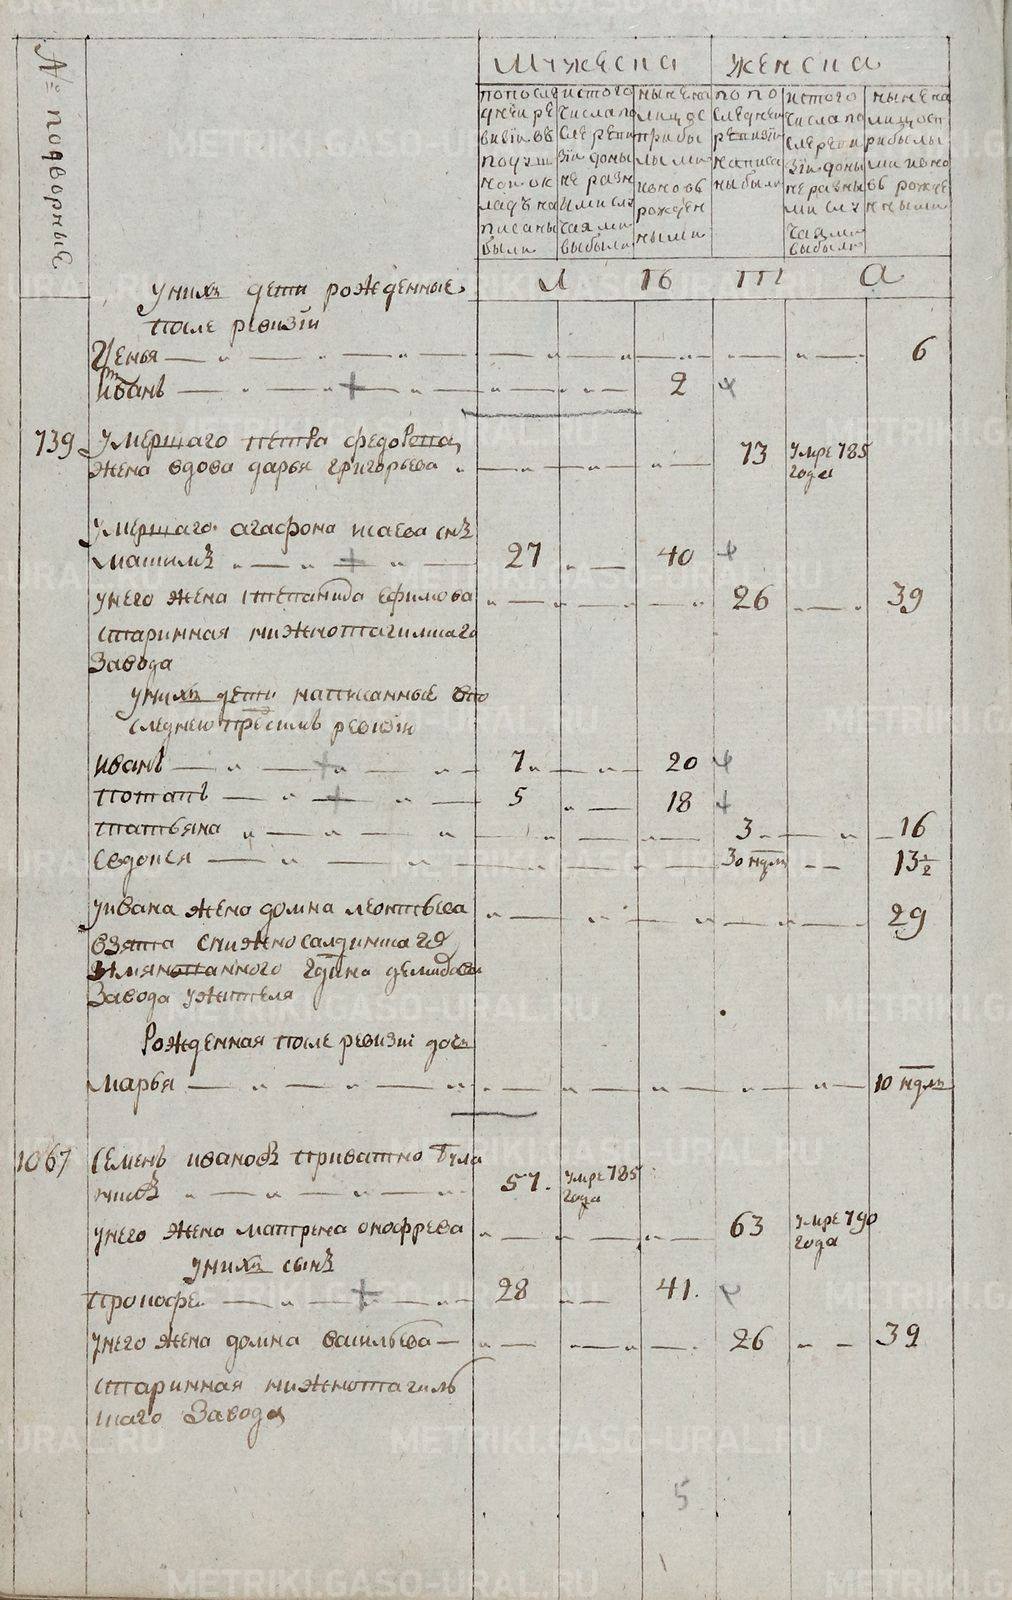 № подворные
Мужеска
женска
по после
дней ре
визiи въ
подуш
ной ок
ладъ на
писаны
были
ис того
числа по
сле реви
зiи до ны
не разн
ыми слу
чаями
выбыло
ныне на
лицо с
прибы
лыми
и вновь
рожден
ными
по по
следней
ревизiи
написа
ны были
ис того
числа по
сле реви
зiи до ны
не разны
ми слу
чаями
выбыло
ныне на
лицо с п
рибылы
ми и вно
вь рожде
нными
Л  Т  А
у них дети рожденные
после ревизiи
Ксенья 6
Иванъ 2
739 умершаго петра федорова
жена вдова дарья григорьева 73 умре 785
года
умершаго агафона исаева снъ
максимъ 27 40
у него жена степанида ефимова 26 39
старинная нижнотагилскаго
завода
у них дети написанные в по
следнею пред симъ ревизiи
иванъ 7 20
потапъ 5 18
татьяна 3 16
Севдокея 30 ндль 13 1/2
у ивана жена домна леонтьева 29
взята с нижносалдинскаго
имянованного Гдина демидова
завода у жителя
Рожденная после ревизiи дочь
марья 10 ндль
1067 Семенъ ивановъ приватно Була
ковъ 57. умре 785
года
у него жена матрена онофрева 63 умре 790
года
у них сынъ
прокофей 28 41.
у него жена домна васильева 26 39
старинная нижнотагиль
скаго Завода
5
METRIKI.GASO-URAL.RU